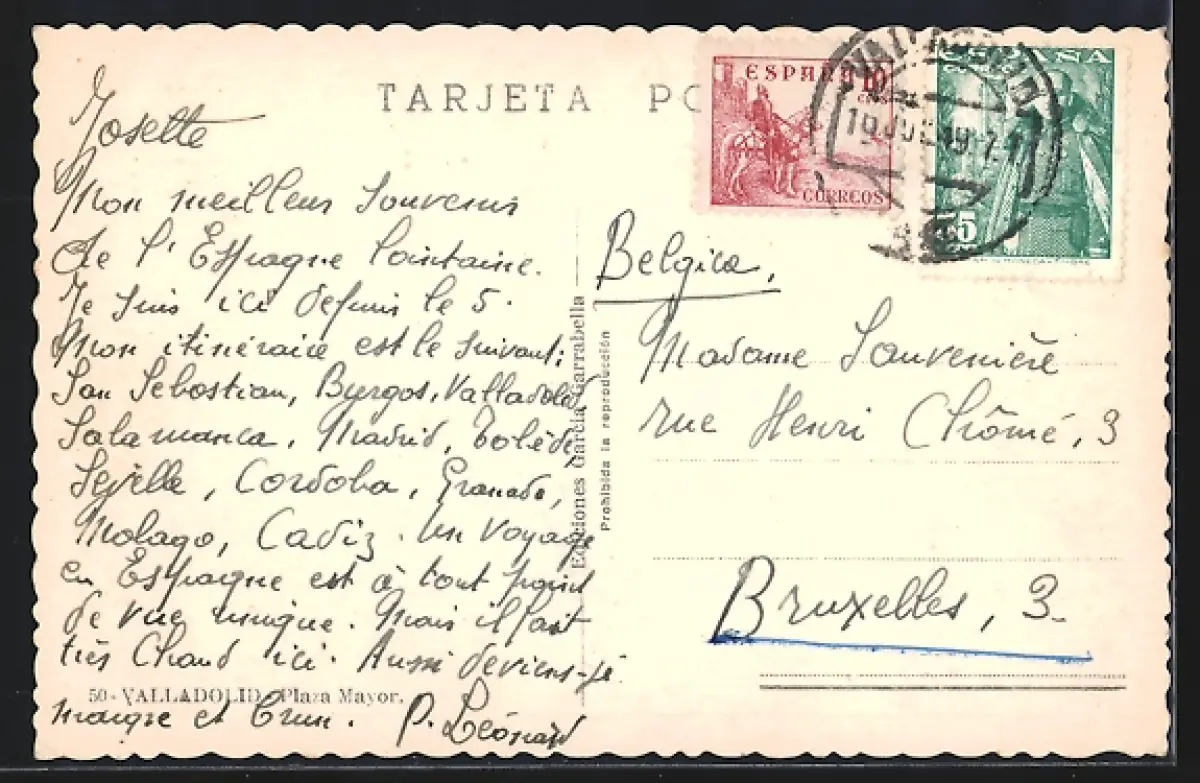 TARJETA PO
ESPAÑA 10
CTS
CORREOS
ESPAÑA
CORREOS
VALLADOLID
Josette
Mon meilleur souvenir
de l'Espagne lointaine.
Je suis ici depuis le 5.
Mon itinéraire est le suivant:
San Sebastian, Burgos, Valladolid
Salamanca, Madrid, Tolède,
Sejville, Cordoba, Granada,
Malaga, Cadiz. Un voyage
en Espagne est à tout point
de vue unique. Mais il fait
très chaud ici. Aussi deviens-je
maigre et brun. P. Léonard
50 - VALLADOLID. Plaza Mayor.
Ediciones García Garrabella
Prohibida la reproducción
Belgica,
Madame Souvenière
rue Henri Chômé, 3
Bruxelles, 3.